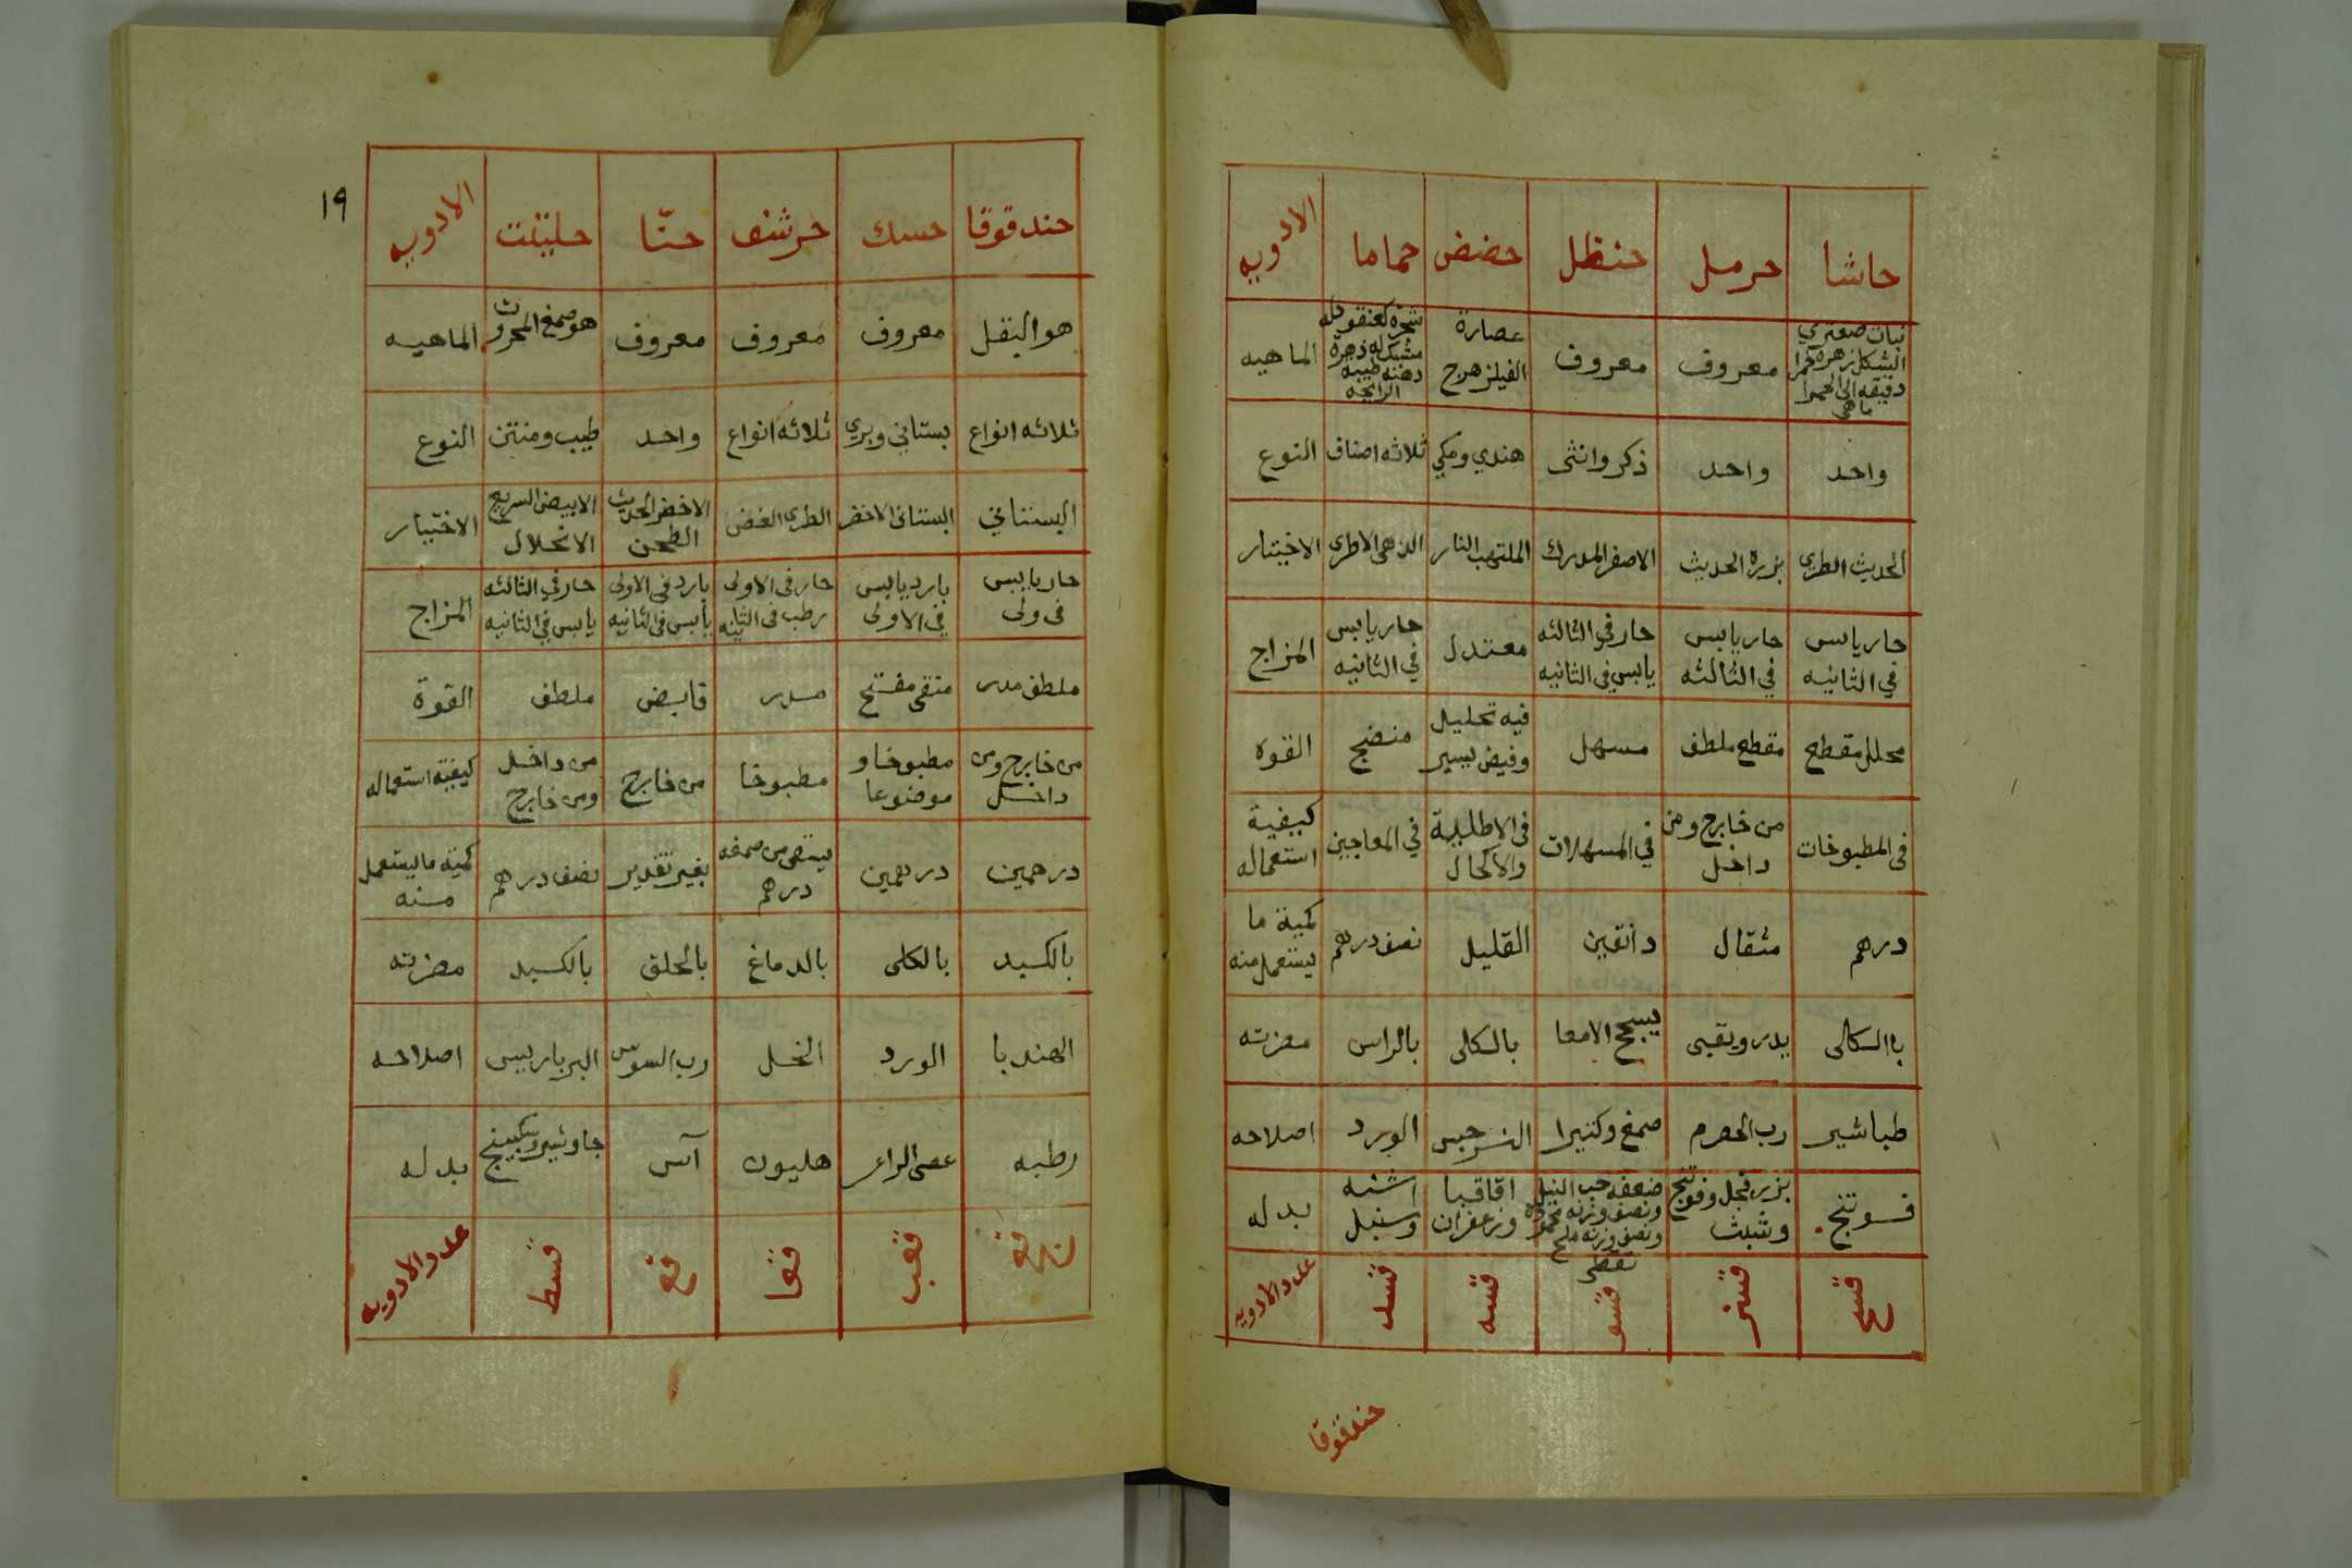 حاشا حرمل حنظل حضض حماما الادويه
نبات صعتري الشكل زهره دقيقه الى الحمرا ما هي
معروف معروف عصارة الفيلزهرج
مشبك له زهرة طيبه الرايحه
الماهيه
واحد واحد ذكر وانثى هندي ومكي ثلاثه اصناف النوع
الحديث الطري بزره الحديث الاصفر المدرك الملتهب النار الذهبى الاطرى الاختيار
حار يابس في الثانيه حار يابس في الثالثه حار في الثالثه يابس في الثانيه معتدل حار يابس في الثانيه المزاج
محلل مقطع مقطع ملطف مسهل فيه تحليل وقبض يسير منضج القوه
فى المطبوخات من خارج ومن داخل في المسهلات فى الاطلية والاكحال في المعاجين كيفية استعماله
درهم مثقال دانقين القليل نصف درهم كمية ما يستعمل منه
بالكلى يدر ويقيى يسحج الامعا بالكلى بالراس مضرته
طباشير رب الحصرم صمغ وكثيرا النرجس الورد اصلاحه
فوتنج بزر فجل وفوتنج وشبث ضعفه حب النيل ونصف وزنه ونصف وزنه ملح نفطى اقاقيا وزعفران اشنه وسنبل بدله
قسح قسز قسو قسه قسد عدد الادويه
حندقوقا
١٩
حندقوقا حسك حرشف حنّا حلتيت الادويه
هو البقل معروف معروف معروف هو صمغ المحروث الماهيه
ثلاثه انواع بستاني وبري ثلاثه انواع واحد طيب ومنتن النوع
البستاني البستانى الاخضر الطرى الغض الاخضر الحديث الطحن الابيض السريع الانحلال الاختيار
حار يابس فى ولى بارد يابس في الاولى حار فى الاولى رطب فى الثانيه بارد فى الاولى يابس فى الثانيه حار في الثالثه يابس في الثانيه المزاج
ملطف مدر منقى مفتح مدر قابض ملطف القوة
من خارج ومن داخل مطبوخا وموضوعا مطبوخا من خارج من داخل ومن خارج كيفية استعماله
درهمين درهمين يسقى من صمغه درهم بغير تقدير نصف درهم كمية ما يستعمل منه
بالكبد بالكلى بالدماغ بالحلق بالكبد مضرته
الهندبا الورد الخل رب السوس البرباريس اصلاحه
رطبه عصى الراعى هليون آس جاوشير وسكبينج بدله
قعب قعا قع قسط عدد الادويه